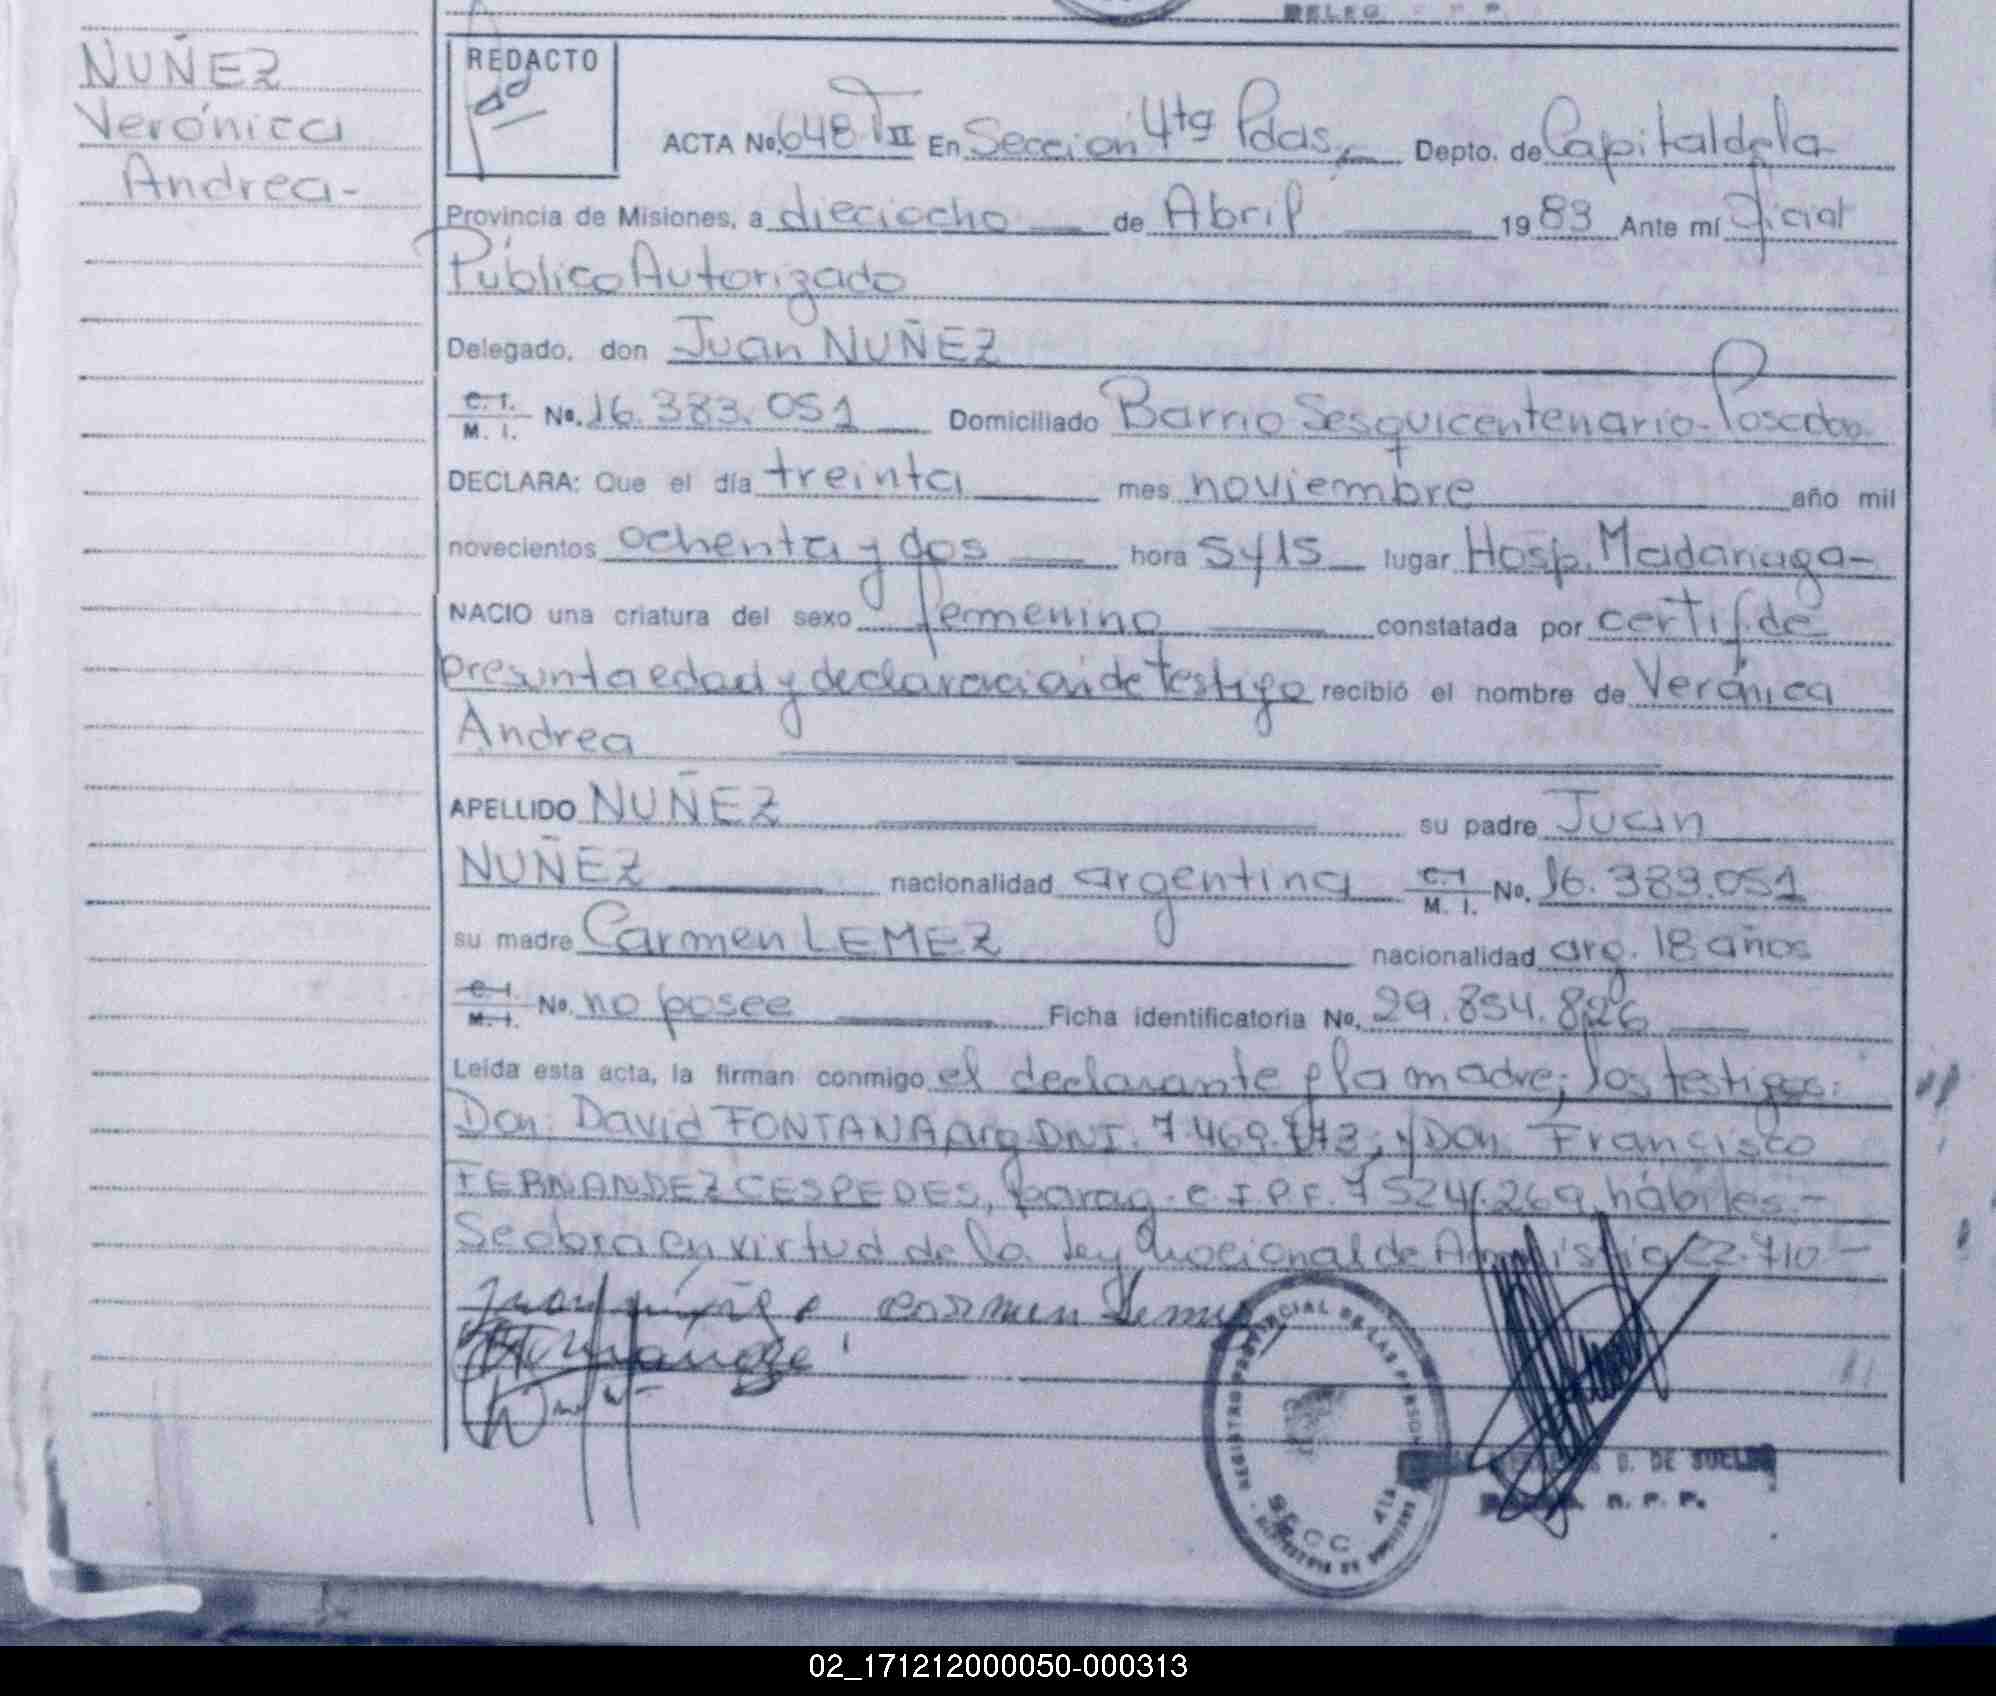 DELEG. R. P. P.
NUÑEZ
Verónica
Andrea-
REDACTO
ACTA No. 648 T II En Seccion 4ta Pdas, Depto. de Capital de la
Provincia de Misiones, a dieciocho de Abril 1983 Ante mí Oficial
Público Autorizado
Delegado, don Juan NUÑEZ
C. I. M. I. No. 16.383.051 Domiciliado Barrio Sesquicentenario-Posadas
DECLARA: Que el día treinta mes noviembre año mil
novecientos ochenta y dos hora 5y15 lugar Hosp. Madariaga-
NACIO una criatura del sexo femenino constatada por certif. de
presunta edad y declaración de testigo recibió el nombre de Verónica
Andrea
APELLIDO NUÑEZ su padre Juan
NUÑEZ nacionalidad argentina C. I. M. I. No. 16.383.051
su madre Carmen LEMEZ nacionalidad arg. 18 años
C. I. M. I. No. no posee Ficha identificatoria No. 29.854.826
Leida esta acta, la firman conmigo el declarante y la madre; los testigos:
Don: David FONTANA arg DNI. 7.469. y Don Francisco
FERNANDEZ CESPEDES, parag. C I P F. 7524.269 hábiles.-
Se labra en virtud de la ley nacional de Amnistía 22.710-
Carmen Lemez
REGISTRO PROVINCIAL DE LAS PERSONAS
SECC 4ta
D. DE
R. P. P.
02_171212000050-000313